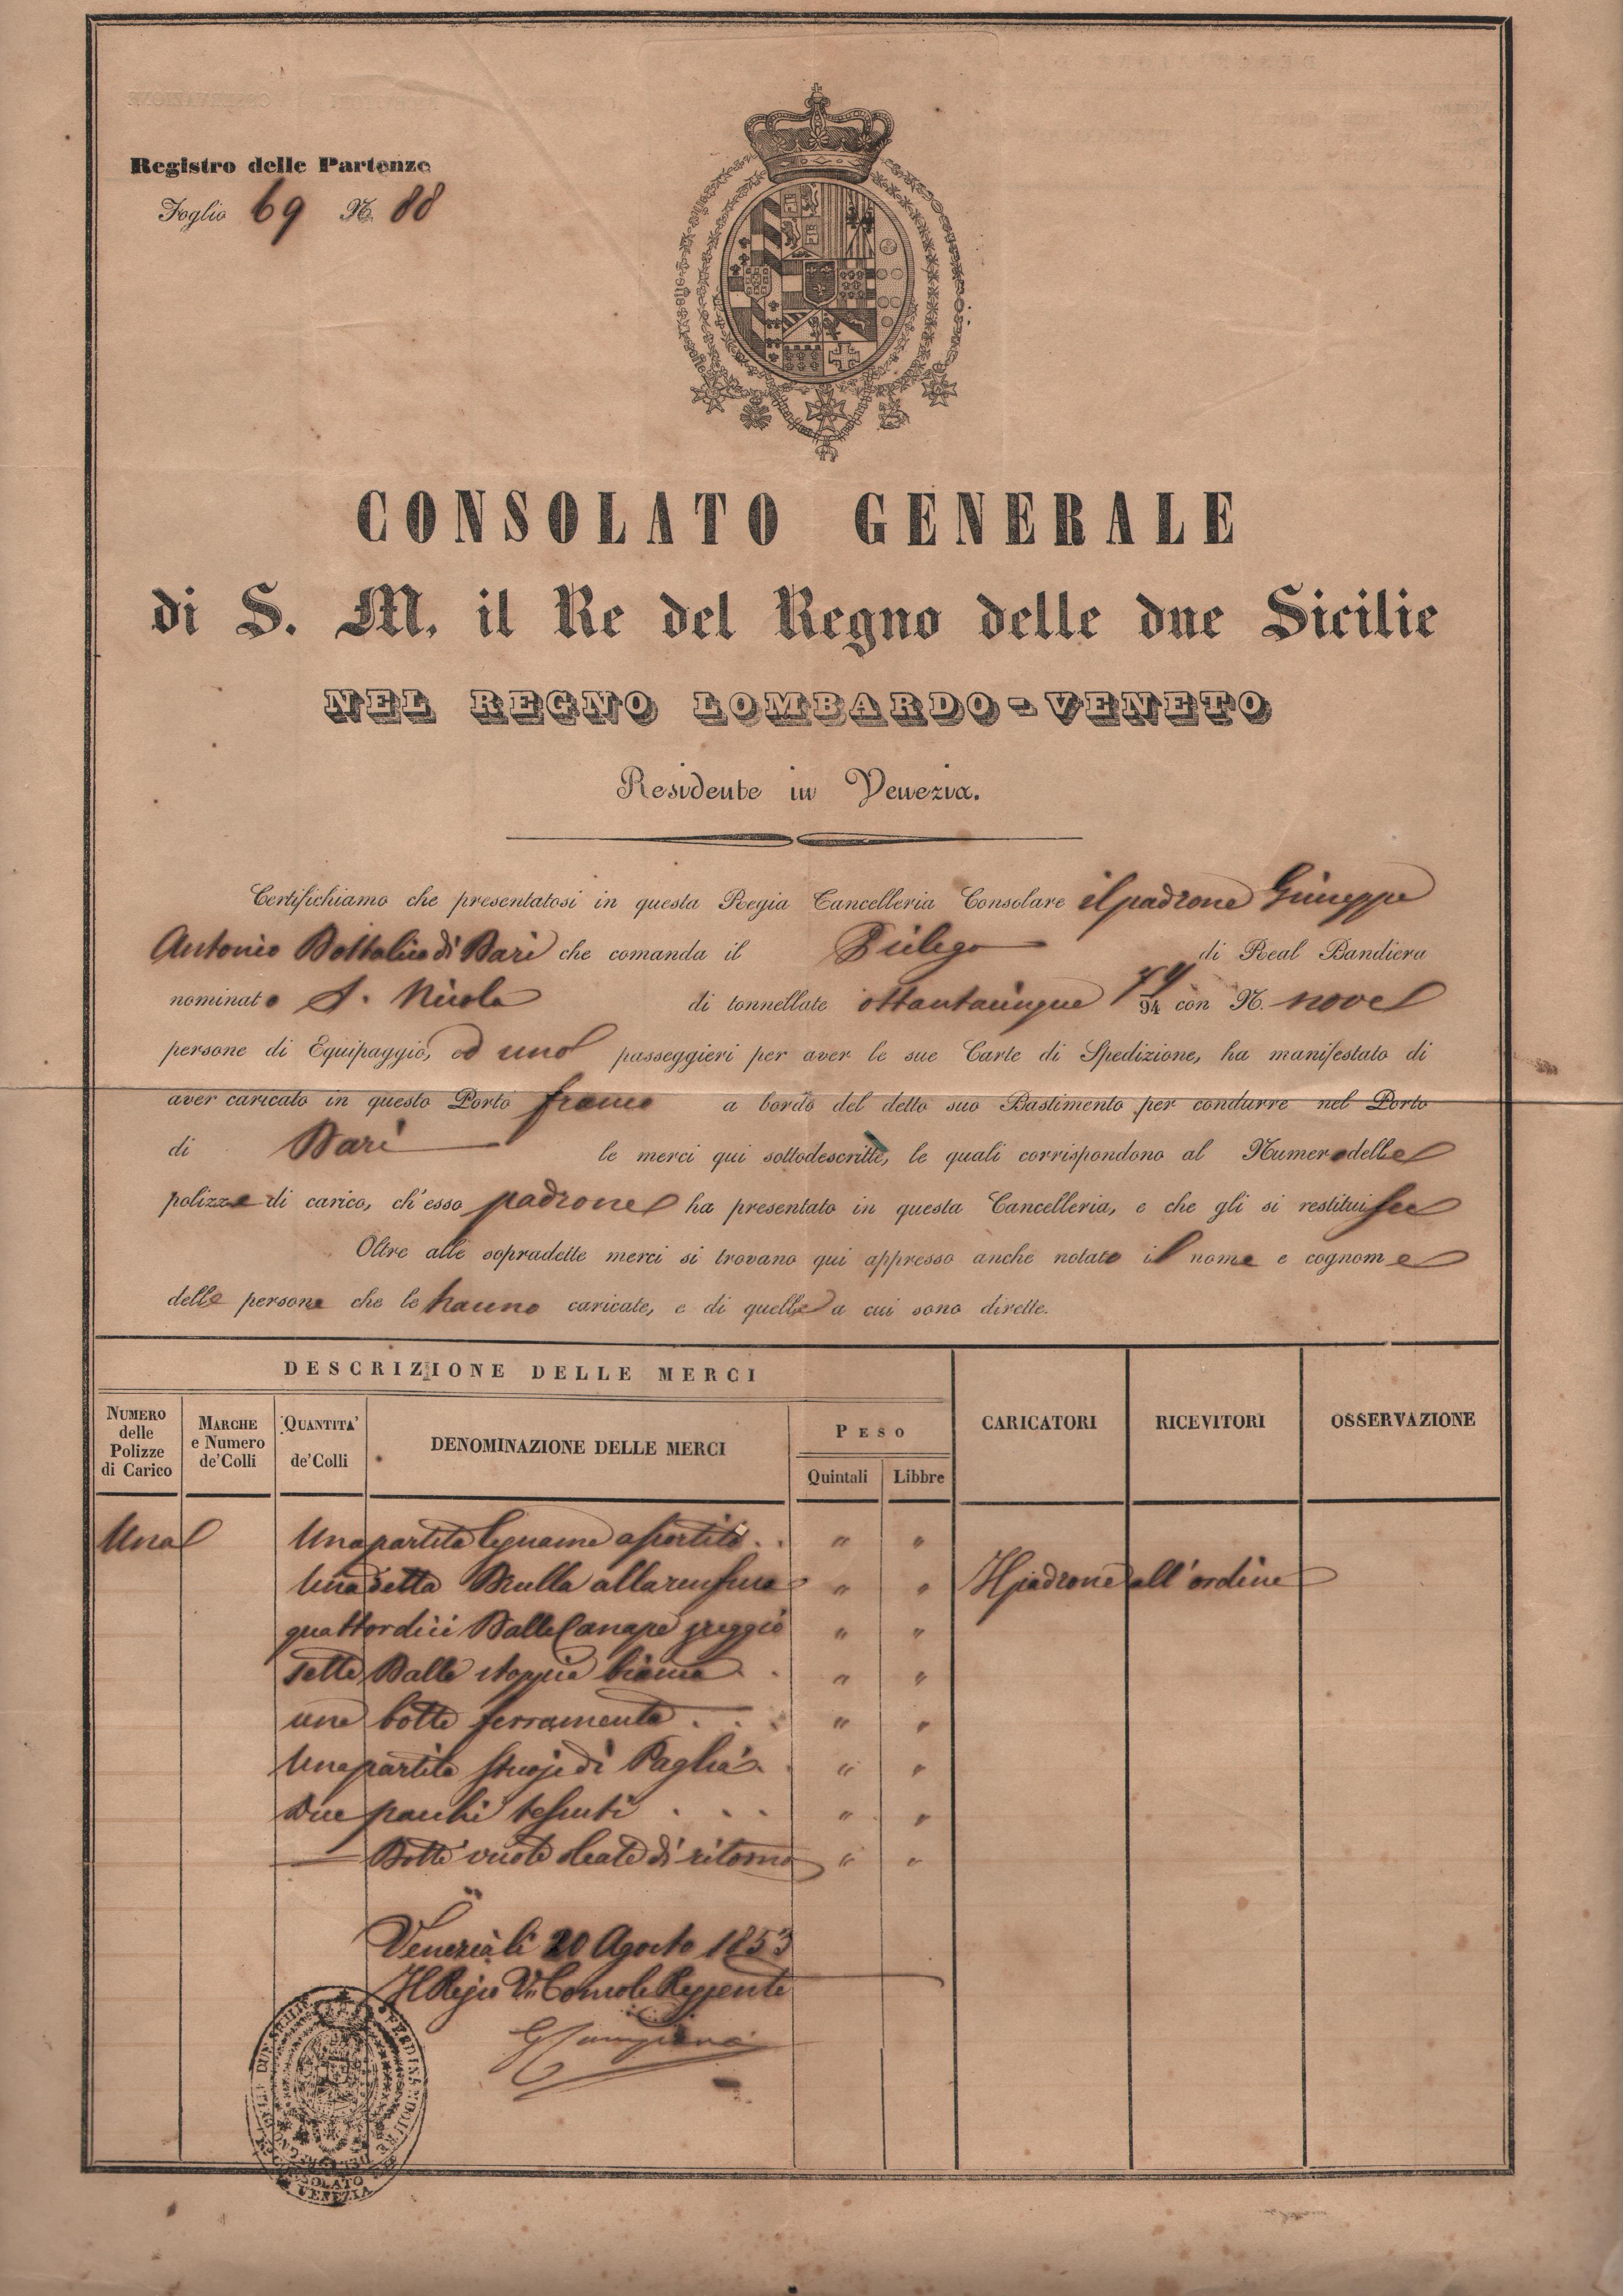 Registro delle Partenze
Foglio 69 N. 88
CONSOLATO GENERALE
di S. M. il Re del Regno delle due Sicilie
NEL REGNO LOMBARDO-VENETO
Residente in Venezia.
Certifichiamo che presentatosi in questa Regia Cancelleria Consolare il padrone Giuseppe
Antonio Bottalico di Bari che comanda il Pielego di Real Bandiera
nominato S. Nicola di tonnellate ottantacinque 94 con N. nove
persone di Equipaggio, ed uno passeggieri per aver le sue Carte di Spedizione, ha manifestato di
aver caricato in questo Porto franco a bordo del detto suo Bastimento per condurre nel Porto
di Bari le merci qui sottodescritte, le quali corrispondono al Numero delle
polizze di carico, ch'esso padrone ha presentato in questa Cancelleria, e che gli si restituisce
Oltre alle sopradette merci si trovano qui appresso anche notato il nome e cognome
delle persone che le hanno caricate, e di quelle a cui sono dirette.
DESCRIZIONE DELLE MERCI
NUMERO delle Polizze di Carico
MARCHE e Numero de'Colli
QUANTITA' de'Colli
DENOMINAZIONE DELLE MERCI
PESO
Quintali Libbre
CARICATORI
RICEVITORI
OSSERVAZIONE
Una Una partita legname assortito . . " "
Una detta Brulla alla rinfusa " " Il padrone all'ordine
quattordici Balle Canape greggio " "
sette Balle stoppia bianca . . " "
una botte ferramenta . . . " "
Una partita stuoje di Paglia . . " "
Due pacchi tessuti . . . " "
— Botti vuote oleate di ritorno " "
Venezia li 20 Agosto 1853
Il Regio V. Console Reggente
CONSOLATO
VENEZIA